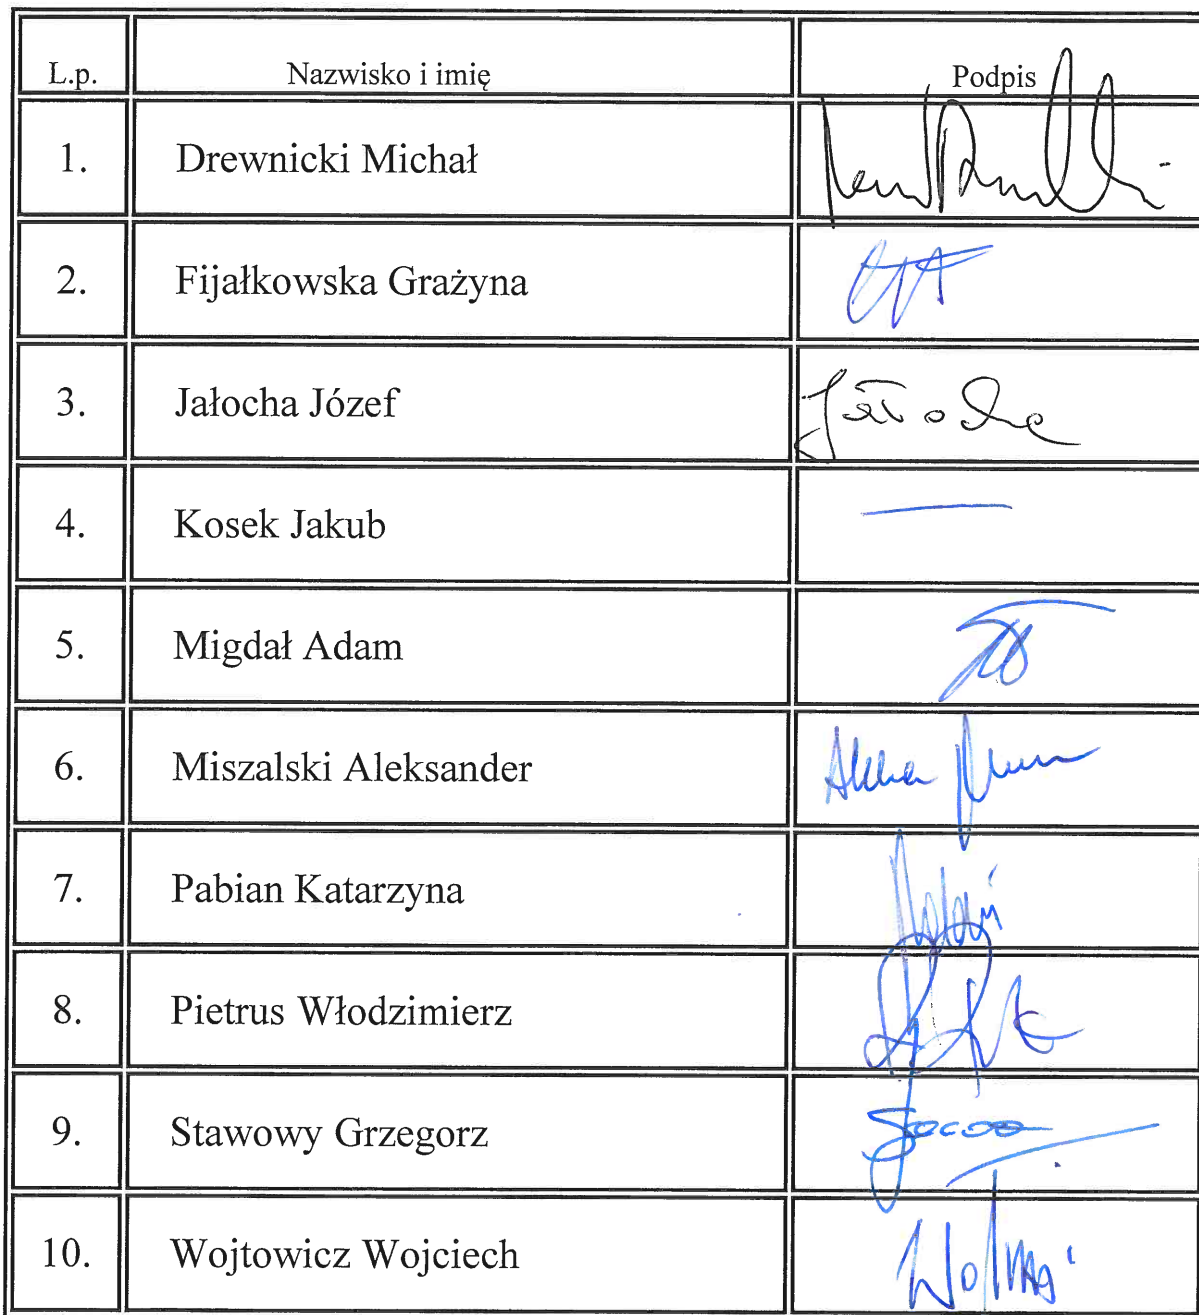 L.p. Nazwisko i imię Podpis
1. Drewnicki Michał
2. Fijałkowska Grażyna
3. Jałocha Józef Jałocha
4. Kosek Jakub —
5. Migdał Adam
6. Miszalski Aleksander
7. Pabian Katarzyna
8. Pietrus Włodzimierz
9. Stawowy Grzegorz
10. Wojtowicz Wojciech